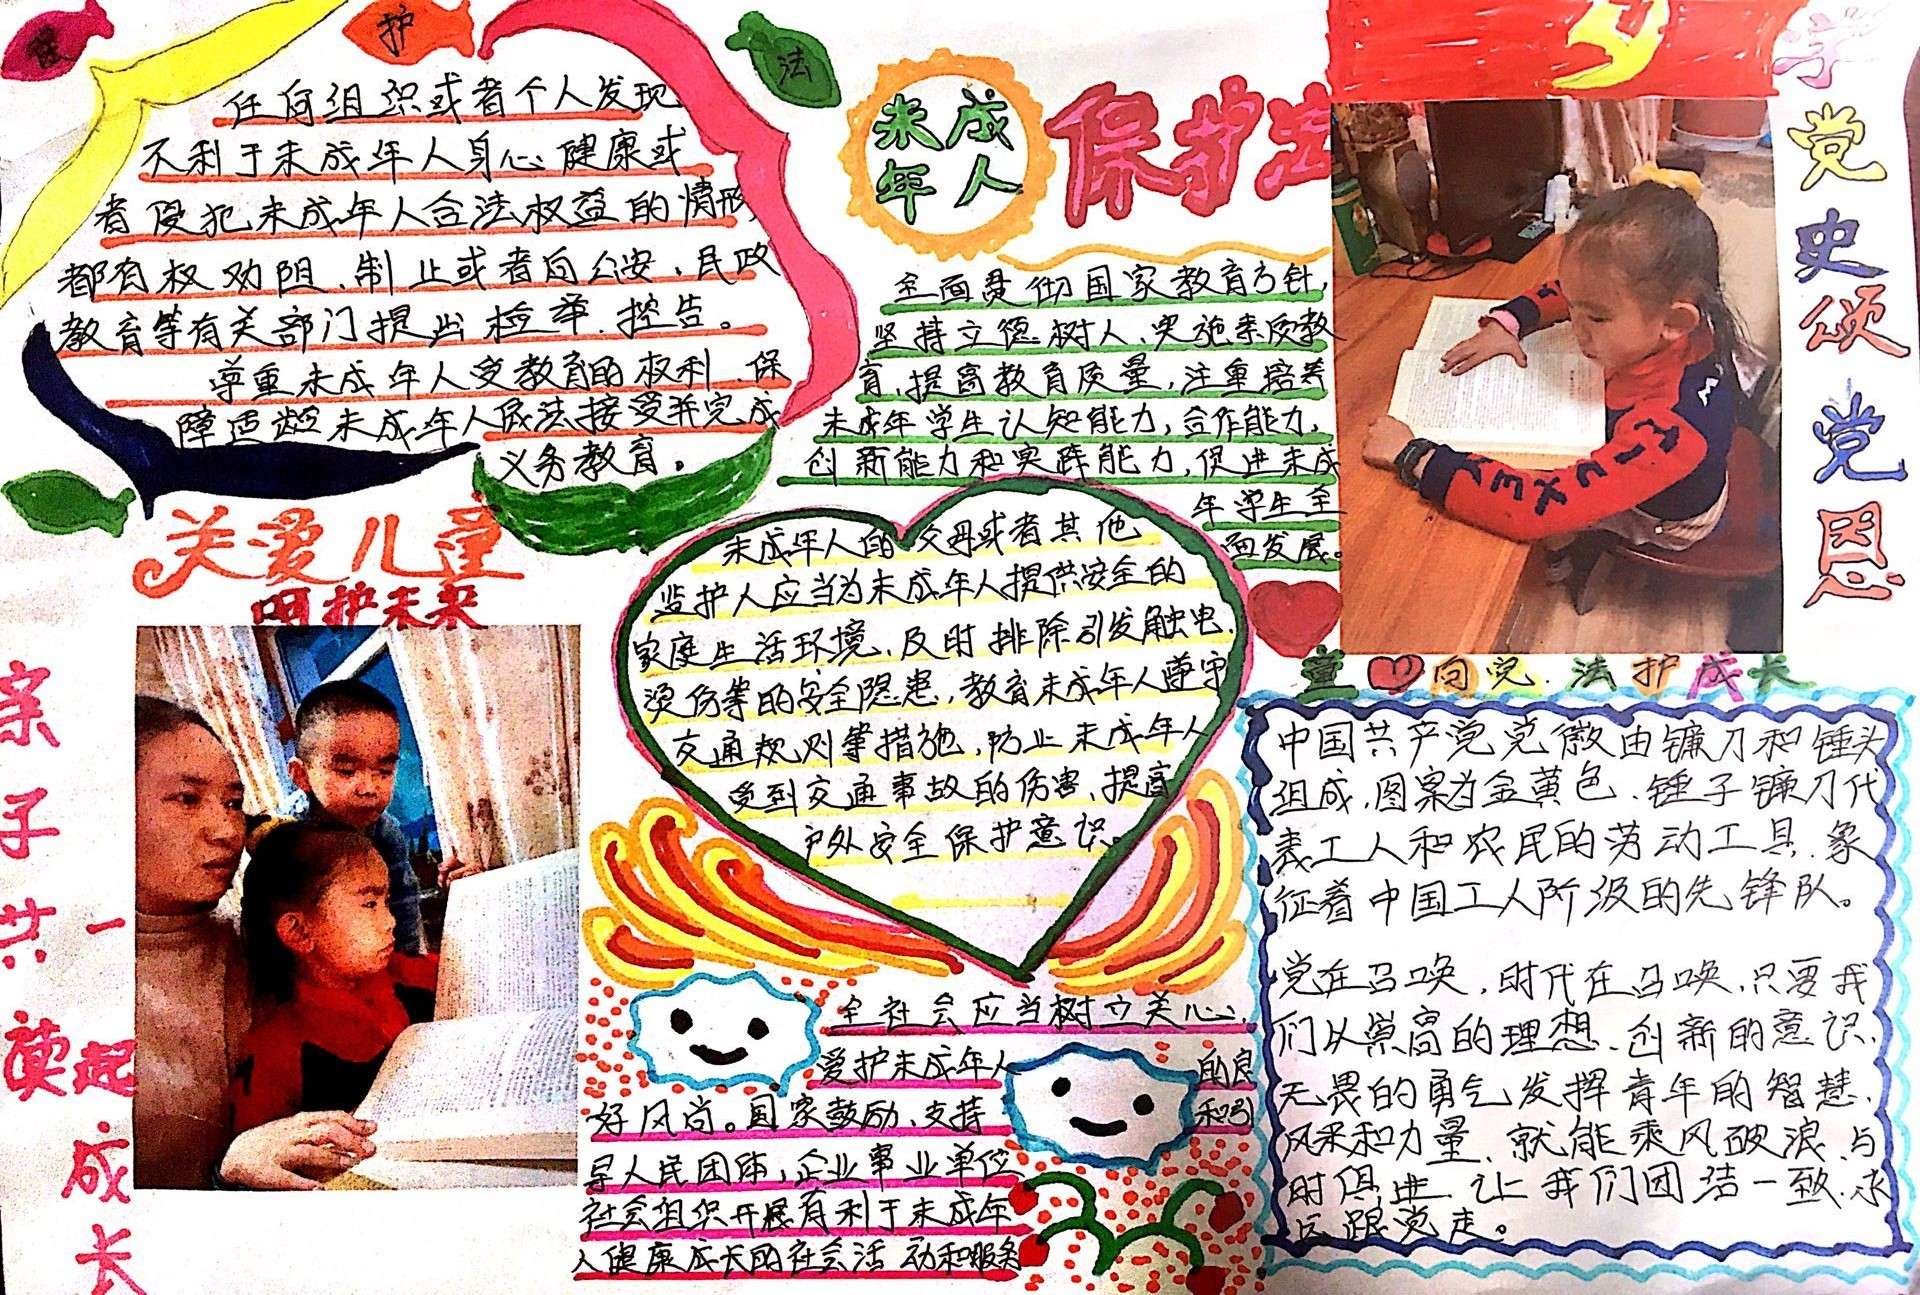 保
护
法
任何组织或者个人发现
不利于未成年人身心健康或
者侵犯未成年人合法权益的情形
都有权劝阻、制止或者向公安、民政
教育等有关部门提出检举、控告。
尊重未成年人受教育的权利、保
障适龄未成年人依法接受并完成
义务教育。
未成
年人
保护法
全面贯彻国家教育方针,
坚持立德树人、实施素质教
育,提高教育质量,注重培养
未成年学生认知能力,合作能力,
创新能力和实践能力,促进未成
年学生全
面发展。
学党史颂党恩
关爱儿童
呵护未来
亲子共读
一起成长
未成年人的父母或者其他
监护人应当为未成年人提供安全的
家庭生活环境、及时排除引发触电、
烫伤等的安全隐患,教育未成年人遵守
交通规则等措施,防止未成年人
受到交通事故的伤害、提高
户外安全保护意识。
全社会应当树立关心、
爱护未成年人的良
好风尚。国家鼓励、支持和引
导人民团体,企业事业单位
社会组织开展有利于未成年
人健康成长的社会活动和服务
童心向党.法护成长
中国共产党党徽由镰刀和锤头
组成,图案为金黄色、锤子镰刀代
表工人和农民的劳动工具、象
征着中国工人阶级的先锋队。
党在召唤,时代在召唤、只要我
们以崇高的理想、创新的意识、
无畏的勇气发挥青年的智慧、
风采和力量、就能乘风破浪、与
时俱进、让我们团结一致、永
远跟党走。